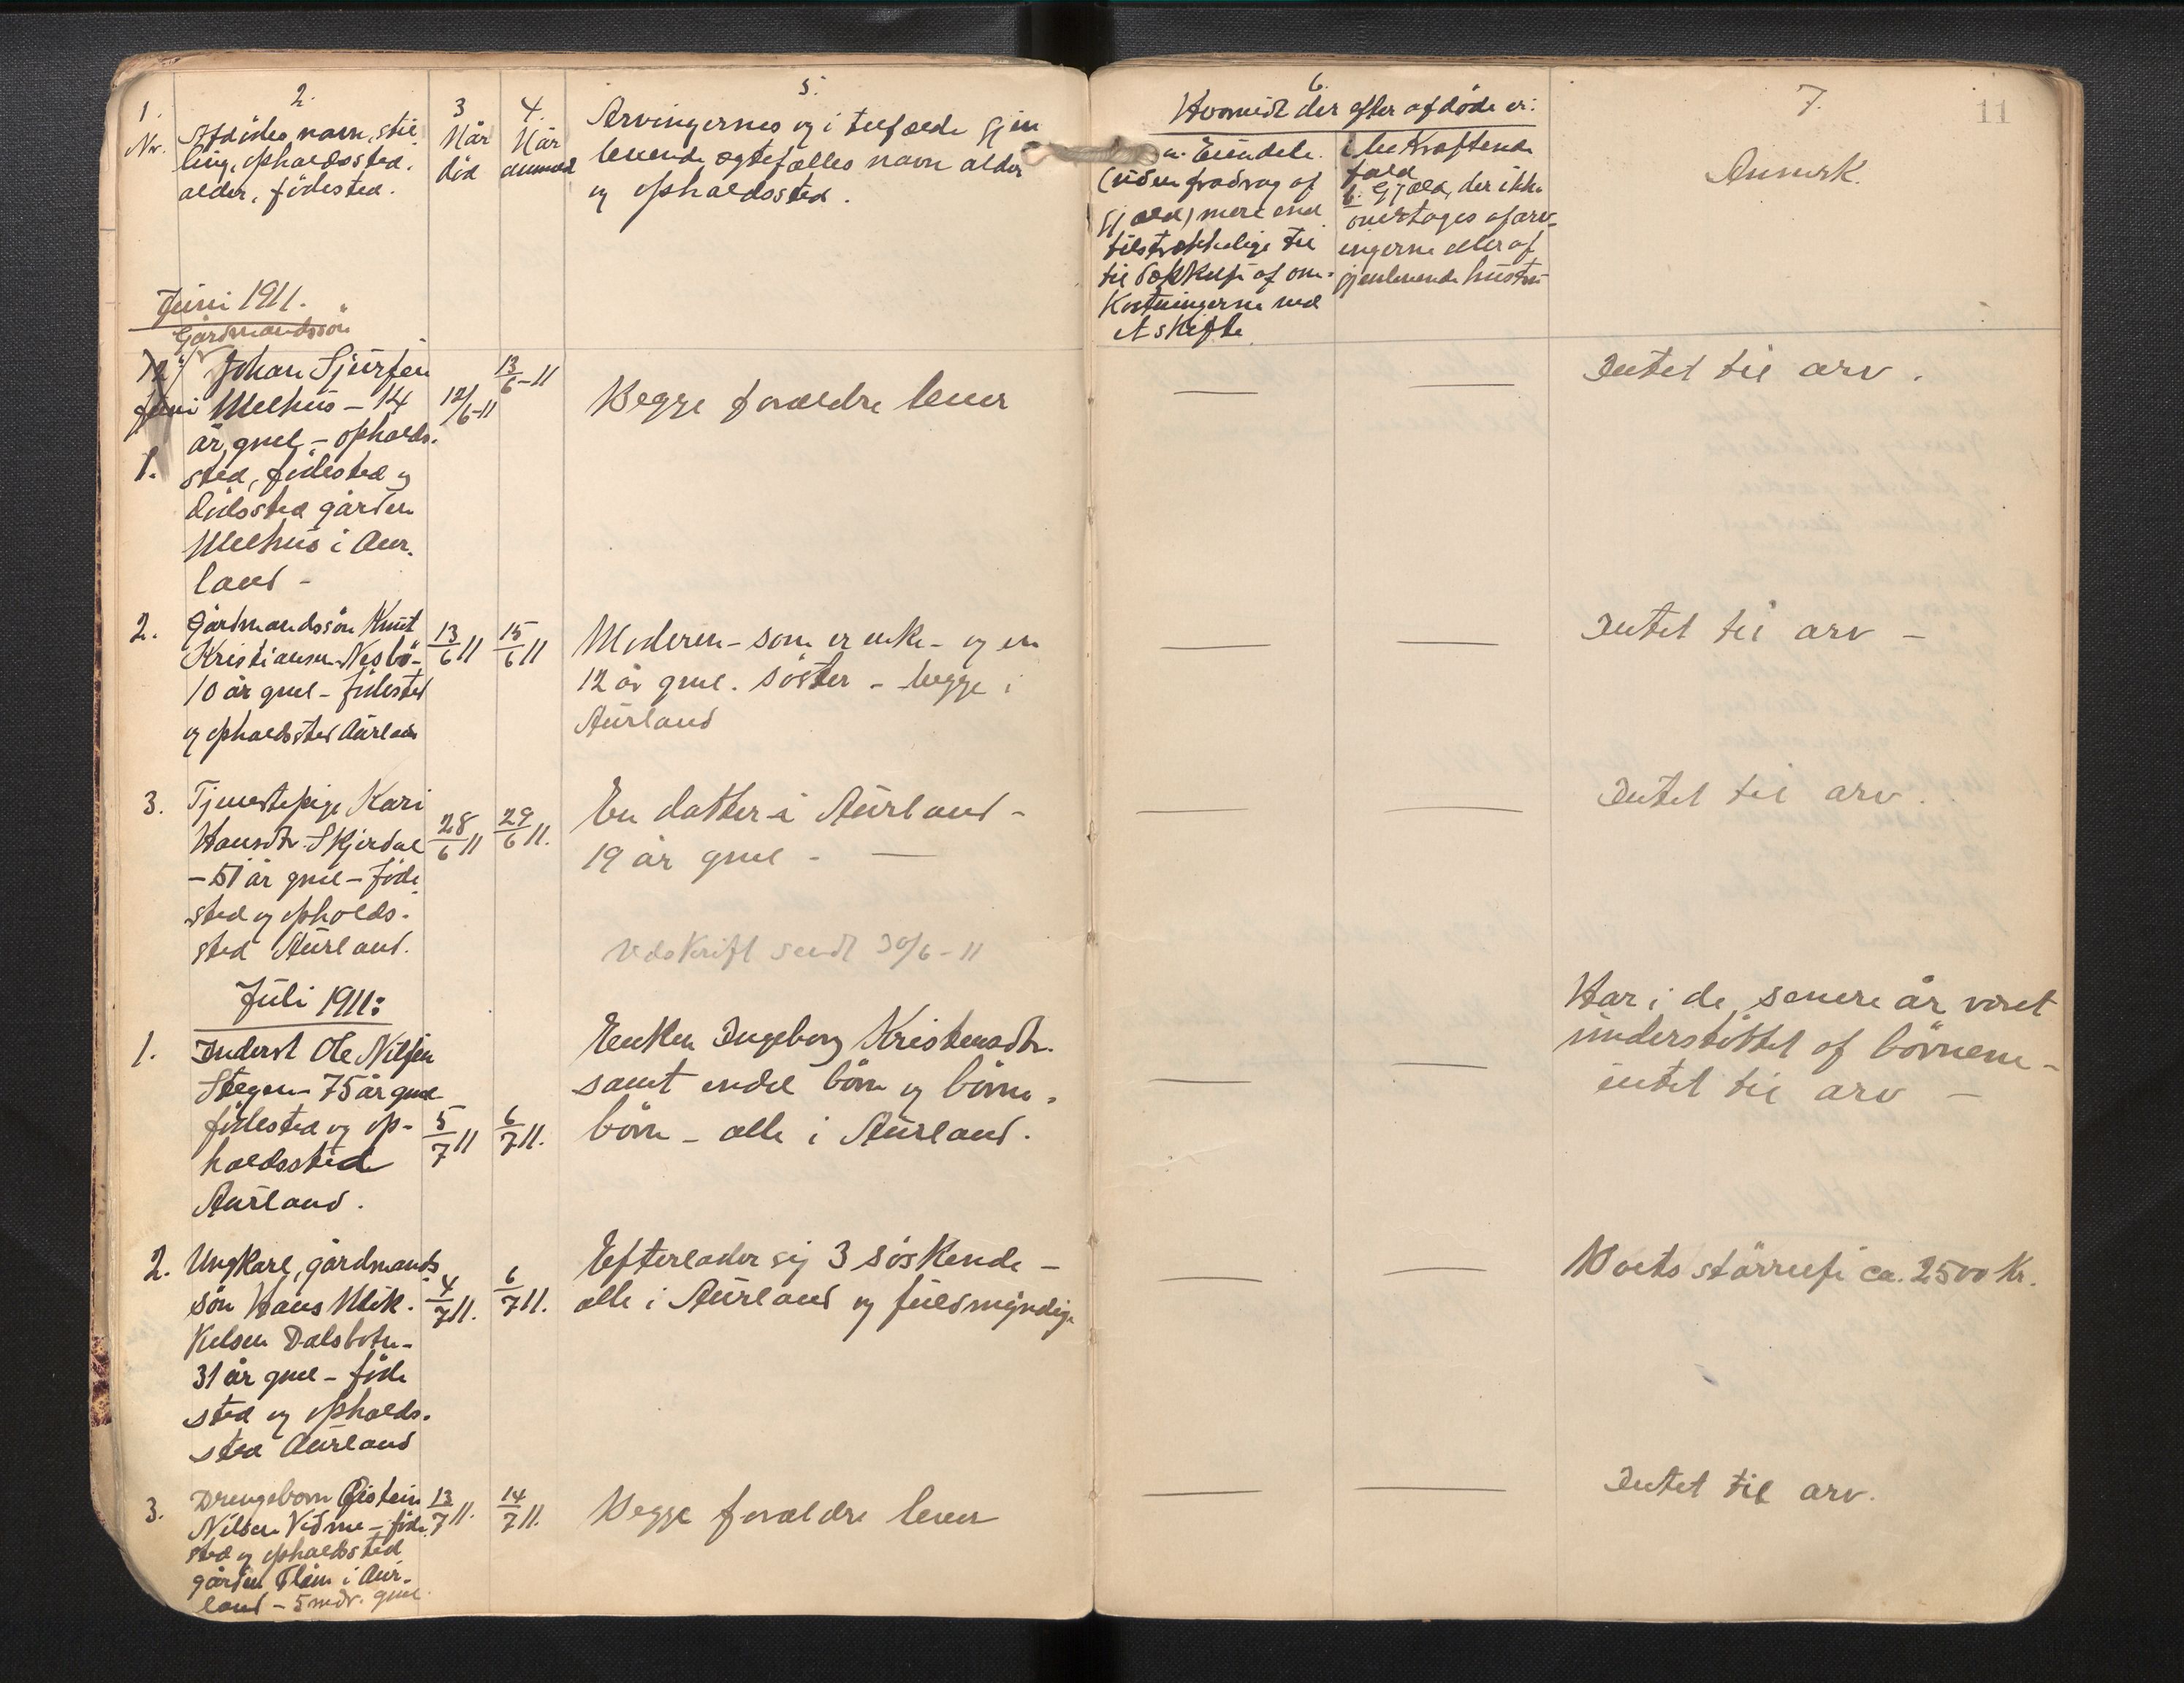 1.
Nr.
2.
Afdødes navn, stil-
ling, opholdssted,
alder, fødested.
3
Når
død
4.
Når
anmeld
5.
Arvingernes og i tilfælde gjen
levende ægtefælles navn alder
og opholdssted.
6.
Hvorvidt der efter afdøde er:
a. Eiendele
(uden fradrag af
gjæld) mere end
tilstrækkelige til
til dækkelse af om-
kostningerne ved
et skifte
i bekræftende
fald
b. Gjæld, der ikke
overtages af arv-
ingerne eller af
gjenlevende hustru
7.
Anmerk.
11
Juni 1911.
Gårdmandssön
Juni
1.
Johan Sjursen
Melhus - 14
år gml - opholds-
sted, fødested og
dödssted gården
Melhus i Aur-
land -
12/6-11
13/6-11
Begge forældre lever
Intet til arv.
2.
Gårdmandssön Knut
Kristiansen Nesbö-
10 år gml - födested
og opholdssted Aurland
13/6 11
15/6 11
Moderen - som er enke - og en
12 år gml. söster - begge i
Aurland
Intet til arv -
3.
Tjenestepige Kari
Hansdtr. Skjerdal
- 51 år gml - föde
sted og opholds-
sted Aurland.
28/6 11
29/6 11.
En datter i Aurland -
19 år gml -
Intet til arv.
Udskrift sendt 30/6-11
Juli 1911:
1.
Inderst Ole Nilsen
Stegen - 75 år gml
födested og op-
holdssted
Aurland.
5/7 11
6/7 11.
Enken Ingeborg Kristensdtr.
samt endel börn og börne-
börn - alle i Aurland.
Har i de senere år været
understöttet af börnene -
intet til arv -
2.
Ungkarl, gårdmands
sön Hans Mik-
kelsen Dalsbotn -
31 år gml - föde
sted og opholds-
sted Aurland
4/7 11.
6/7 11.
Efterlader sig 3 söskende -
alle i Aurland og fuldmyndige
Boets störrelse ca. 2500 kr.
3.
Drengebarn Øistein
Nilsen Vidme - föde
sted og opholdssted
gården Flåm i Aur-
land - 5 mdr. gml
13/7 11.
14/7 11.
Begge forældre lever
Intet til arv.